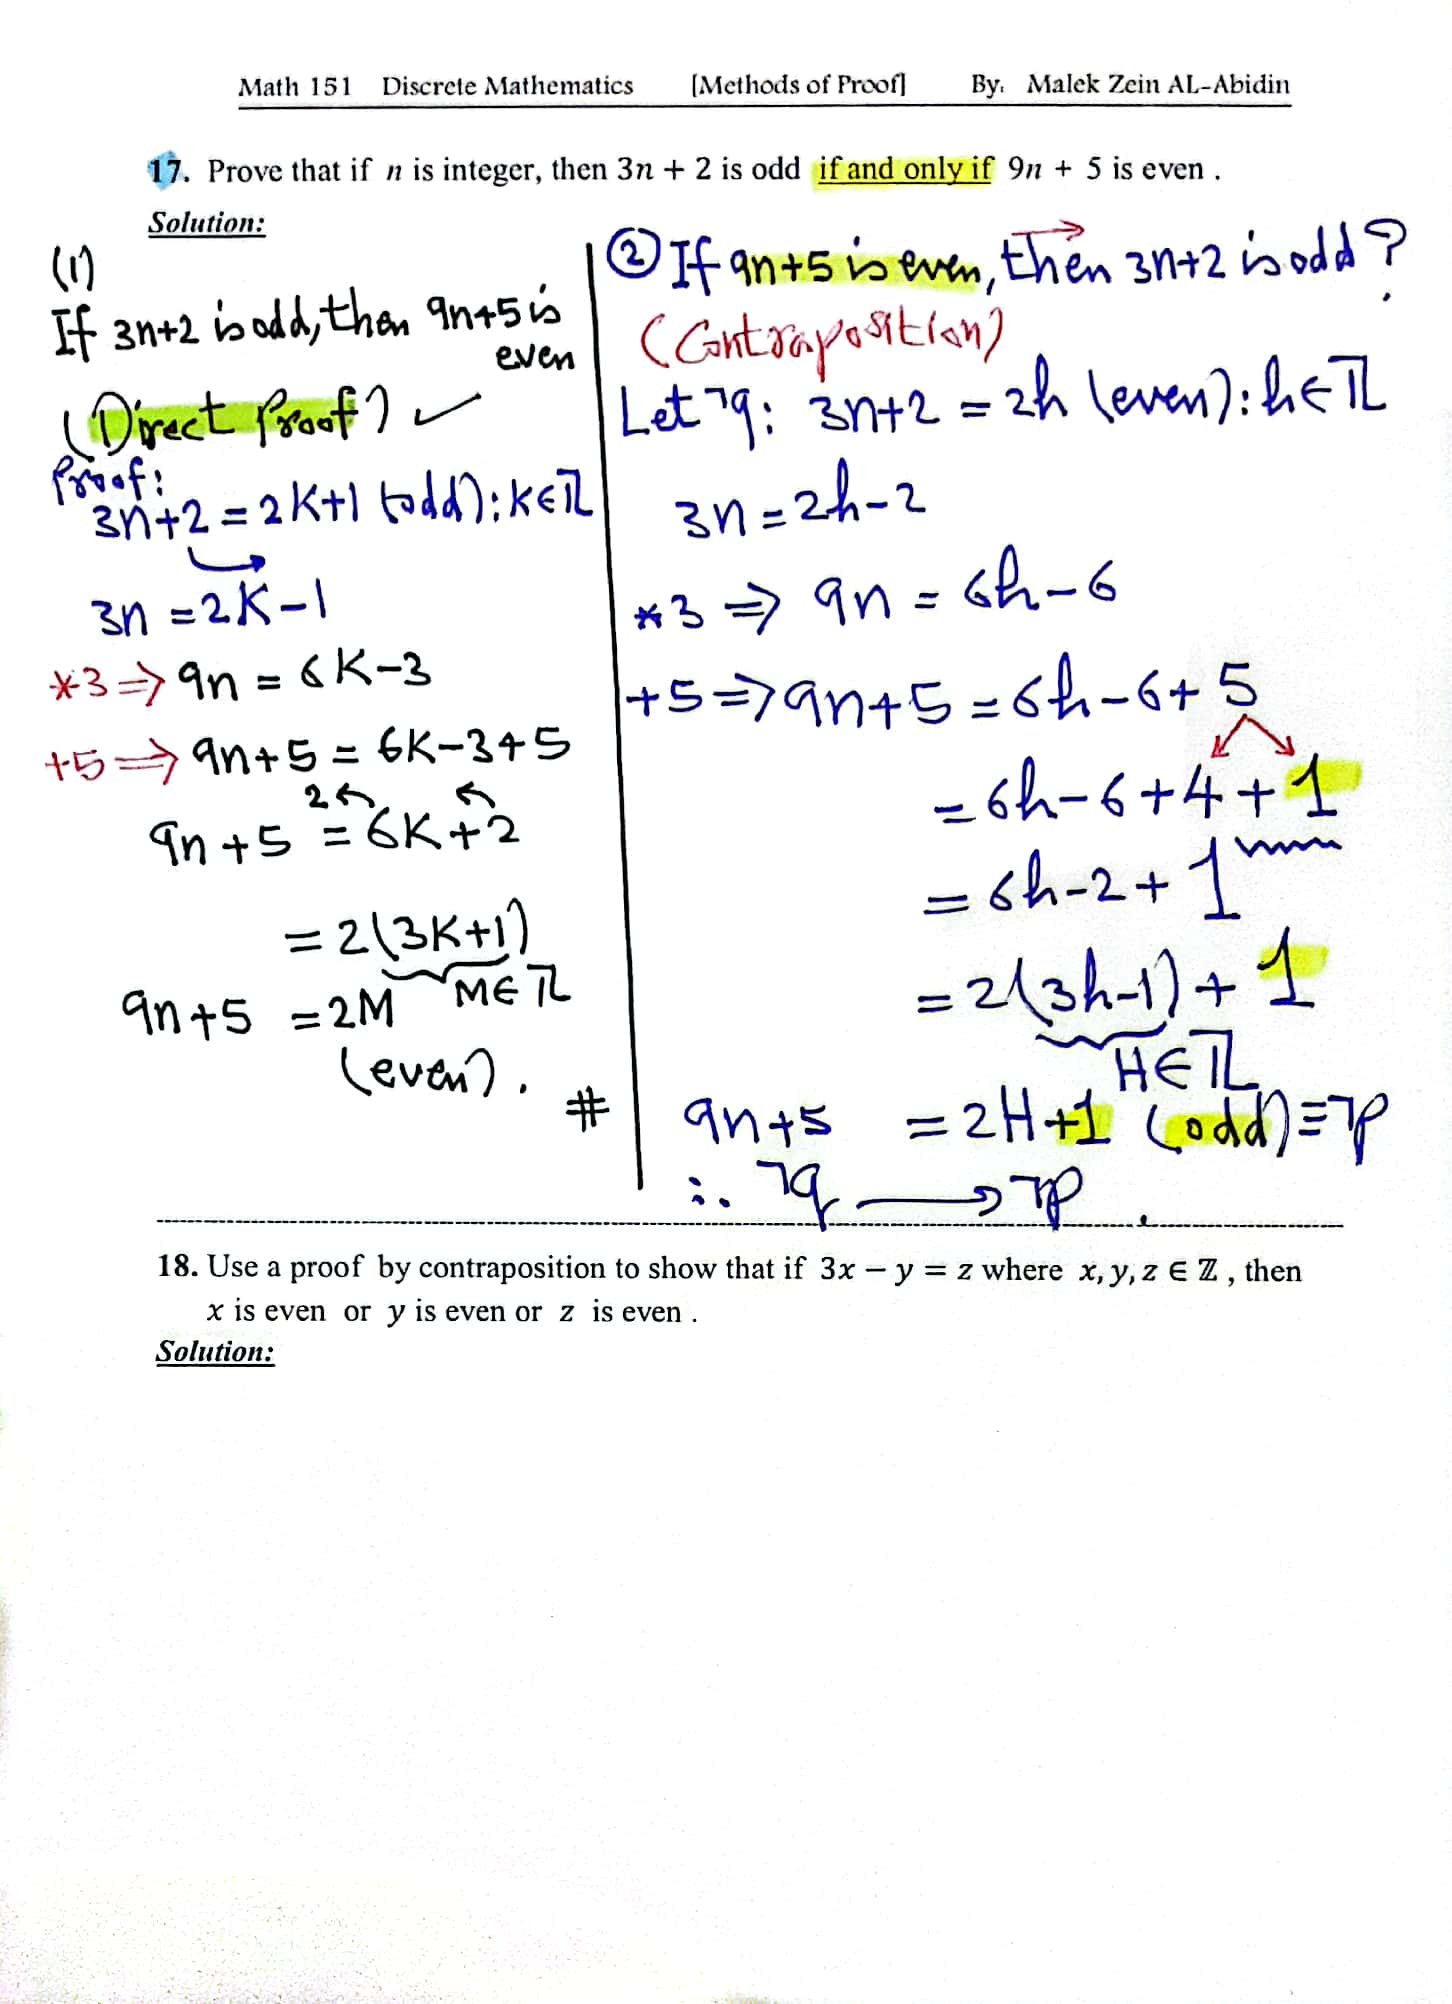 Math 151 Discrete Mathematics [Methods of Proof] By. Malek Zein AL-Abidin
17. Prove that if n is integer, then 3n + 2 is odd if and only if 9n + 5 is even .
Solution:
(1)
If 3n+2 is odd, then 9n+5 is
even
(Direct Proof) ✓
Proof:
3n+2 = 2K+1 (odd): K∈ℤ
3n = 2K-1
*3 ⇒ 9n = 6K-3
+5 ⇒ 9n+5 = 6K-3+5
2
9n+5 = 6K+2
= 2(3K+1)
M∈ℤ
9n+5 = 2M
(even). #
② If 9n+5 is even, then 3n+2 is odd?
(Contraposition)
Let ¬q: 3n+2 = 2h (even): h∈ℤ
3n = 2h-2
*3 ⇒ 9n = 6h-6
+5 ⇒ 9n+5 = 6h-6+5
= 6h-6+4+1
= 6h-2+1
= 2(3h-1)+1
H∈ℤ
9n+5 = 2H+1 (odd) ≡ ¬p
∴ ¬q → ¬p .
18. Use a proof by contraposition to show that if 3x − y = z where x, y, z ∈ ℤ , then
x is even or y is even or z is even .
Solution: